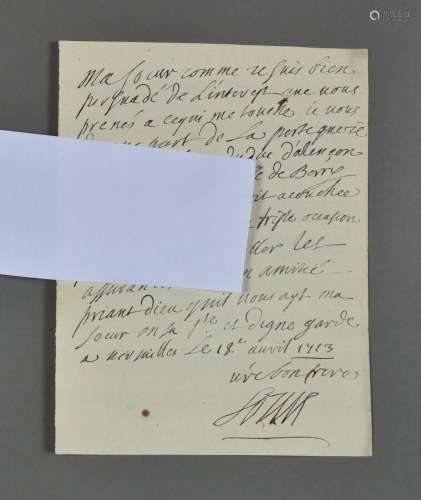 Ma soeur comme je suis bien
persuadé de l'interest que vous
prenés a ce qui me touche je vous
part de la perte que je
du duc d'alençon
de Berry
acouchée
triste occasion
les
assurances amitié
priant dieu qu'il vous ayt ma
soeur en sa ste et digne garde
a versailles le 18e avril 1713
vre bon frere
Louis